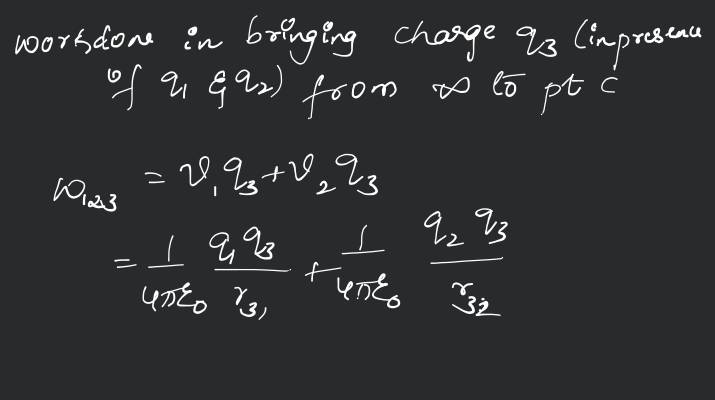 workdone in bringing charge q₃ (in presence
of q₁ & q₂) from ∞ to pt C
W₁,₂,₃ = V₁q₃ + V₂q₃
= 1/4πε₀ q₁q₃/r₃₁ + 1/4πε₀ q₂q₃/r₃₂